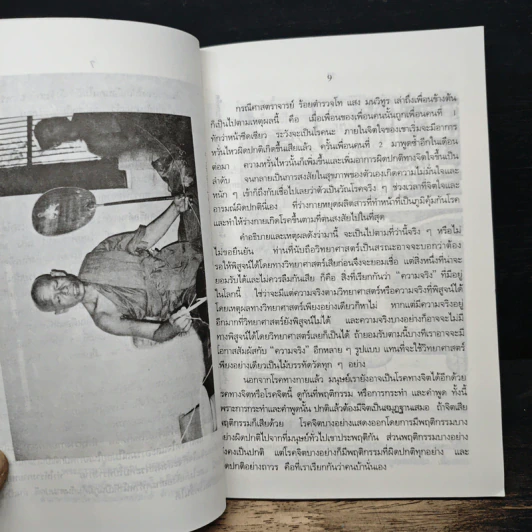 ๙
กรณีศาสตราจารย์ ร้อยตำรวจโท แสง มนวิทูร เล่าถึงเพื่อนข้างต้น
ก็เป็นไปตามเหตุผลนี้ คือ เมื่อเพื่อนของเพื่อนคนนั้นถูกเพื่อนคนที่ ๑
ทักว่าหน้าซีดเซียว ระวังจะเป็นโรคนะ ภายในจิตใจของเขาเริ่มจะมีอาการ
หวั่นไหวผิดปกติเกิดขึ้นเสียแล้ว ครั้นเพื่อนคนที่ ๒ มาพูดซ้ำอีกในเดือน
ต่อมา ความหวั่นไหวนั้นก็เพิ่มขึ้นและเพิ่มอาการผิดปกติทางจิตใจขึ้นเป็น
ลำดับ จนกลายเป็นการสงสัยในสุขภาพของตัวเองเกิดความไม่มั่นใจและ
หนัก ๆ เข้าก็ถึงกับเชื่อไปเลยว่าตัวเป็นวัณโรคจริง ๆ ช่วงเวลาที่จิตใจและ
อารมณ์ผิดปกตินี้เอง ที่ร่างกายหยุดผลิตสารที่ทำหน้าที่เป็นภูมิคุ้มกันโรค
และทำให้ร่างกายเกิดโรคขึ้นตามที่ตนสงสัยไปในที่สุด
คำอธิบายและเหตุผลดังว่ามานี้ จะเป็นไปตามที่ว่านี้จริง ๆ หรือไม่
ไม่ขอยืนยัน ท่านที่นับถือวิทยาศาสตร์เป็นสรณะอาจจะบอกว่าต้อง
รอให้พิสูจน์ได้โดยทางวิทยาศาสตร์เสียก่อนจึงจะยอมเชื่อ แต่สิ่งหนึ่งที่น่าจะ
ยอมรับได้และไม่ควรลืมกันเสีย ก็คือ สิ่งที่เรียกกันว่า "ความจริง" ที่มีอยู่
ในโลกนี้ ใช่ว่าจะมีแต่ความจริงตามวิทยาศาสตร์หรือความจริงที่พิสูจน์ได้
โดยเหตุผลทางวิทยาศาสตร์เพียงอย่างเดียวก็หาไม่ หากแต่มีความจริงอยู่
อีกมากที่วิทยาศาสตร์ยังพิสูจน์ไม่ได้ และความจริงบางอย่างก็อาจจะไม่มี
ทางพิสูจน์ได้โดยวิทยาศาสตร์เลยก็เป็นได้ ถ้ายอมรับตามนี้บางทีเราอาจจะมี
โอกาสสัมผัสกับ "ความจริง" อีกหลาย ๆ รูปแบบ แทนที่จะใช้วิทยาศาสตร์
เพียงอย่างเดียวเป็นไม้บรรทัดวัดทุก ๆ อย่าง
นอกจากโรคทางกายแล้ว มนุษย์เรายังอาจเป็นโรคทางจิตได้อีกด้วย
โรคทางจิตหรือโรคจิตนี้ ดูกันที่พฤติกรรม หรือการกระทำ และคำพูด ทั้งนี้
เพราะการกระทำและคำพูดนั้น ปกติแล้วต้องมีจิตเป็นสมุฏฐานเสมอ ถ้าจิตเสีย
พฤติกรรมก็เสียด้วย โรคจิตบางอย่างแสดงออกโดยการมีพฤติกรรมบาง
อย่างผิดปกติไปจากที่มนุษย์ทั่วไปเขาประพฤติกัน ส่วนพฤติกรรมบางอย่าง
ยังคงเป็นปกติ แต่โรคจิตบางอย่างก็มีพฤติกรรมที่ผิดปกติทุกอย่าง และ
ผิดปกติอย่างถาวร คือที่เราเรียกกันว่าคนบ้านั่นเอง